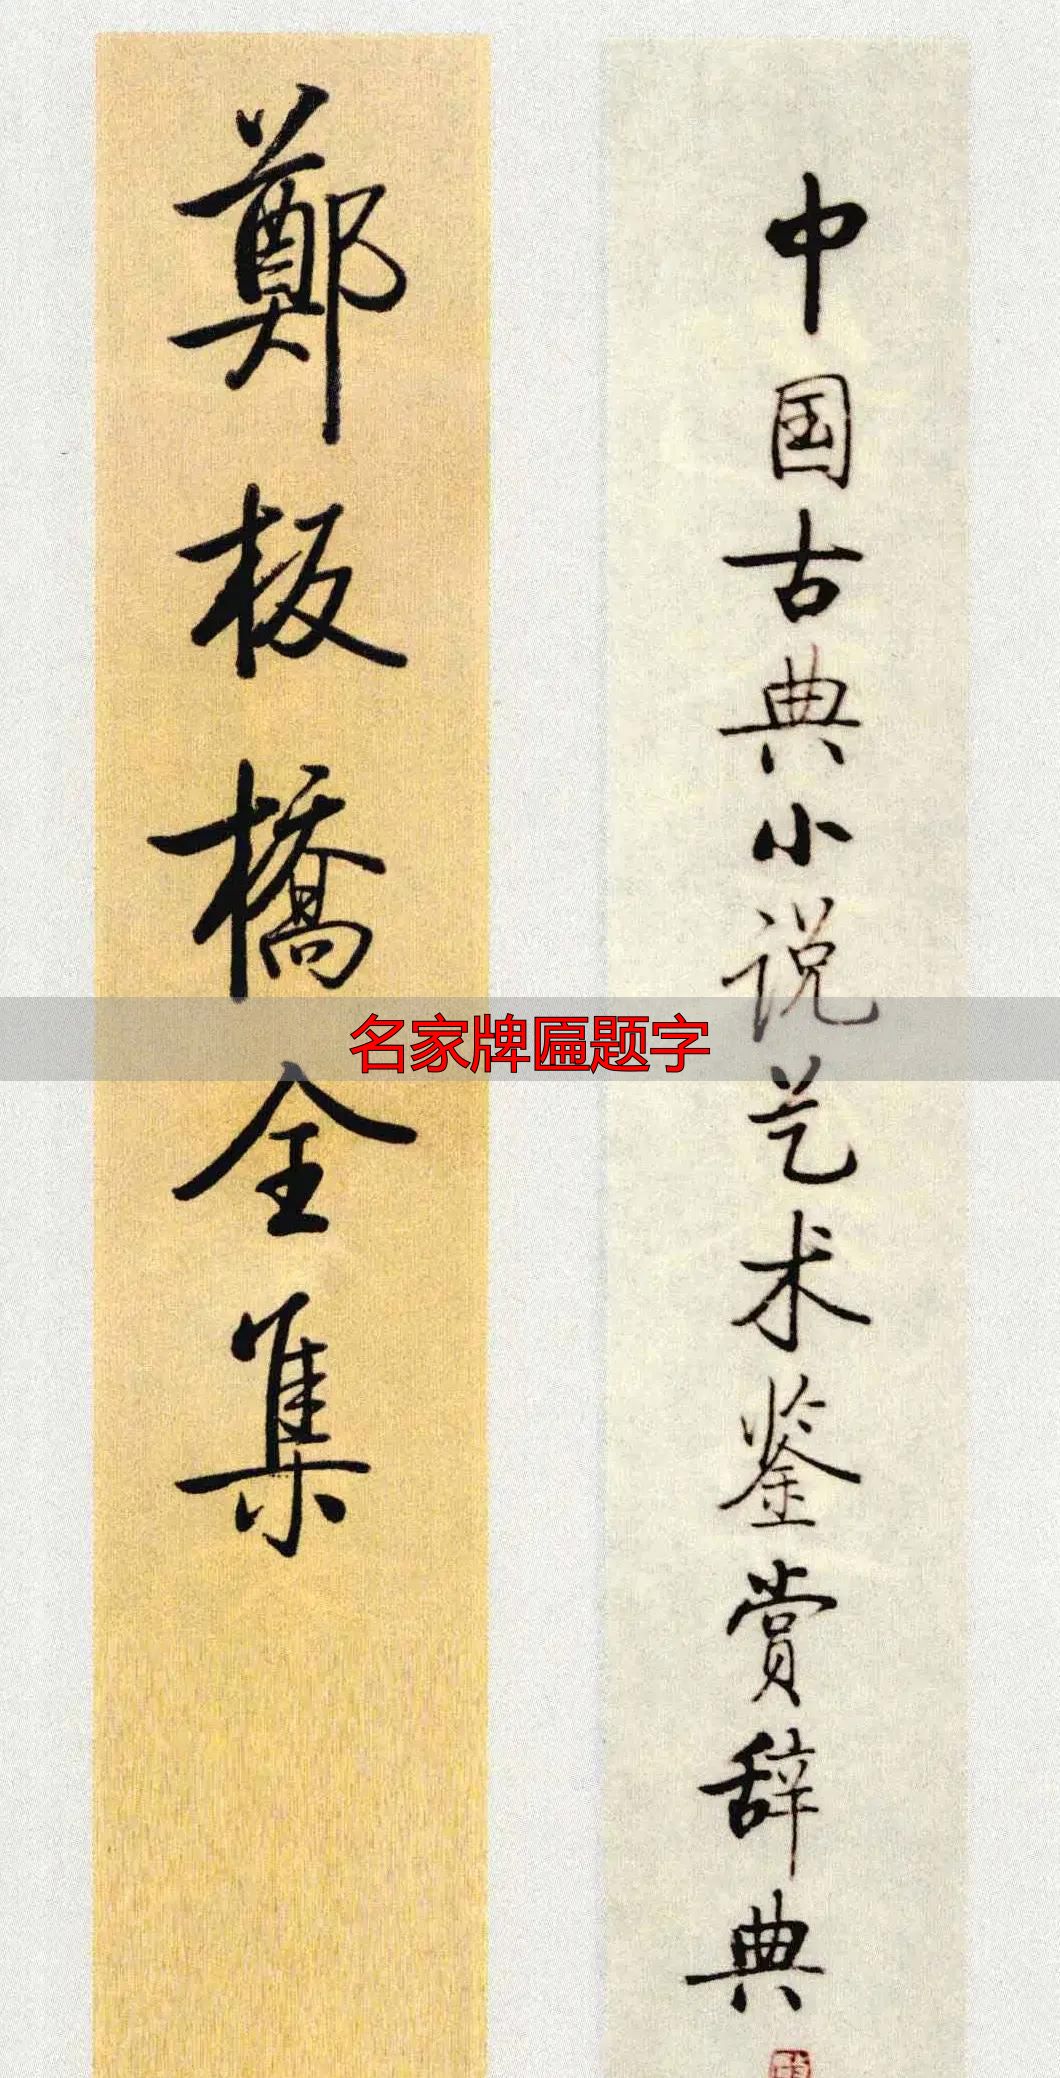 中国古典小说艺术鉴赏辞典
鄭板橋全集
名家牌匾题字